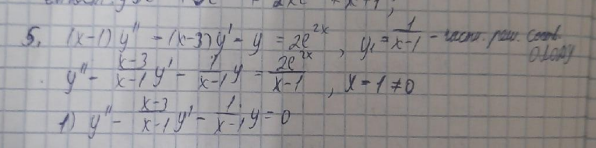 5. (x-1) y'' - (x-3) y' - y = 2e^{2x}, y_1 = \frac{1}{x-1} - част. реш. соотв
ОЛОДУ
y'' - \frac{x-3}{x-1} y' - \frac{1}{x-1} y = \frac{2e^{2x}}{x-1}, x-1 ≠ 0
1) y'' - \frac{x-3}{x-1} y' - \frac{1}{x-1} y = 0